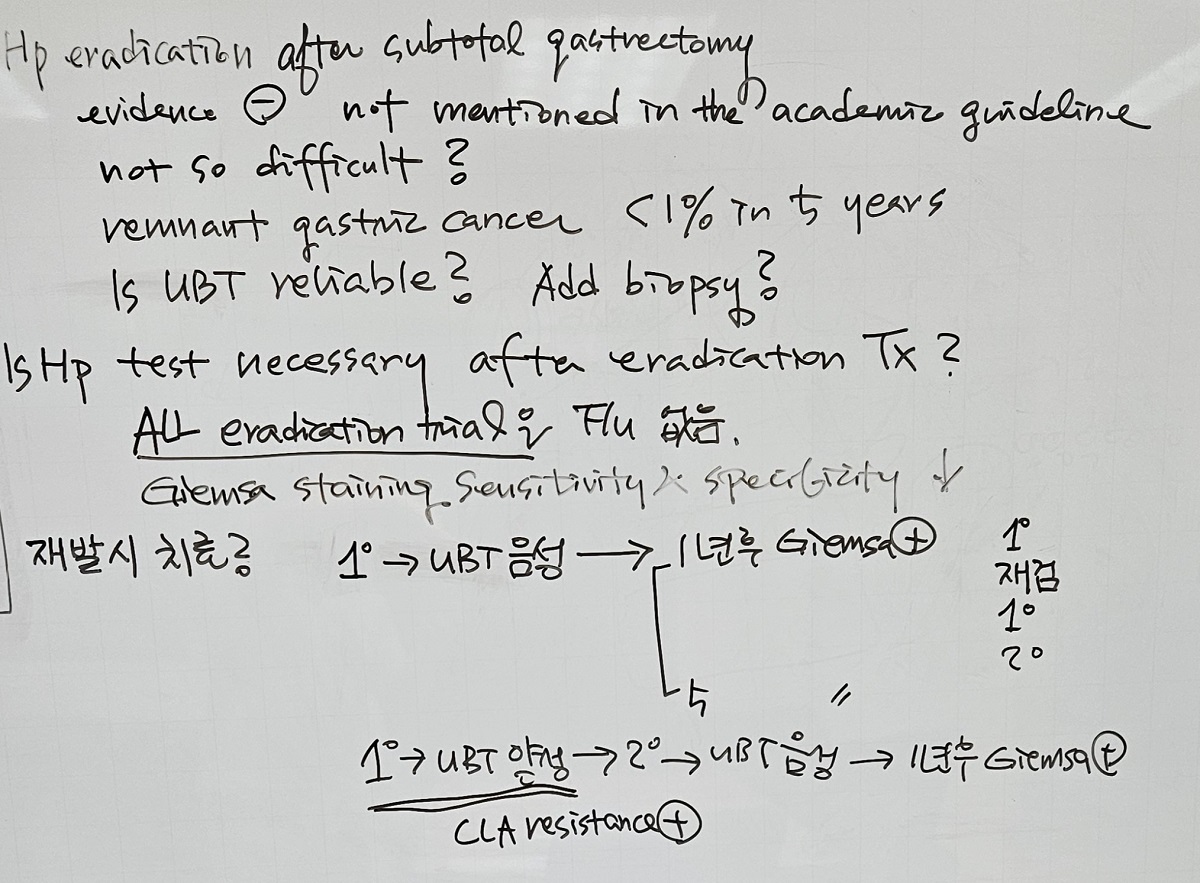 Hp eradication after subtotal gastrectomy
evidence ⊖ not mentioned in the academic guideline
not so difficult?
remnant gastric cancer <1% in 5 years
Is UBT reliable? Add biopsy?
Is Hp test necessary after eradication Tx?
ALL eradication trial은 F/u 없음.
Giemsa staining. Sensitivity specificity ↓
재발시 치료? 1° → UBT 음성 → 1년후 Giemsa ⊕ 1°
재검
1°
2°
5 〃
1° → UBT 양성 → 2° → UBT 음성 → 1년후 Giemsa ⊕
CLA resistance ⊕